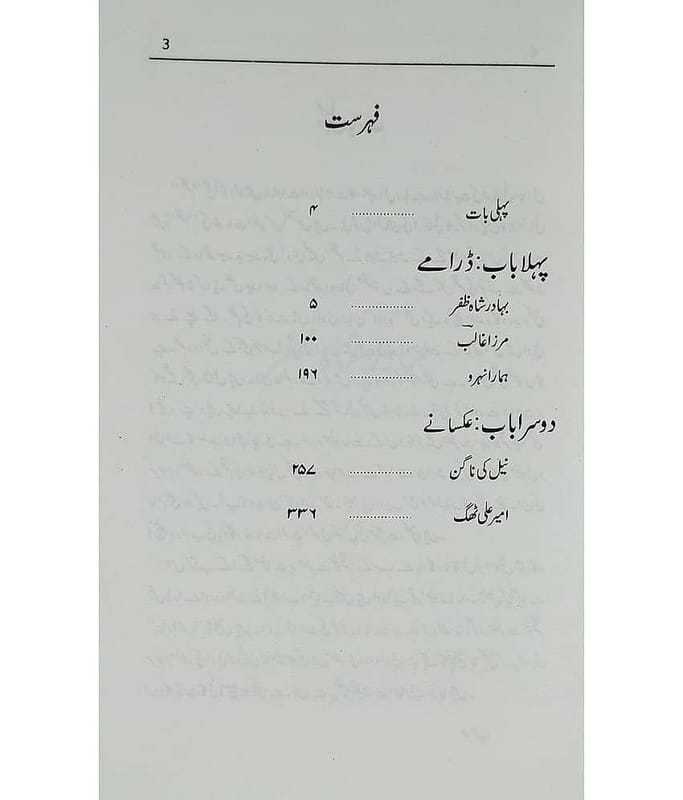 3
فہرست
پہلی بات ................ ۴
پہلا باب: ڈرامے
بہادر شاہ ظفر ................ ۵
مرزا غالب ................ ۱۰۰
ہمارا نہرو ................ ۱۹۶
دوسرا باب: عکسانے
نیل کی ناگن ................ ۲۵۷
امیر علی ٹھگ ................ ۳۳۶